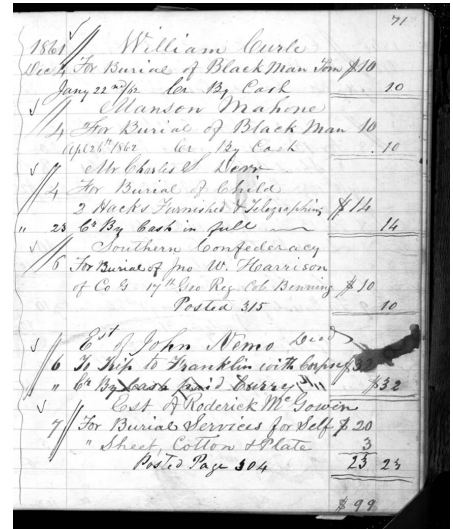 71
1861 William Curle
Decr 4 For Burial of Black Man Tom $10
Jany 22nd/62 Cr By Cash 10
Manson Mahone
4 For Burial of Black Man 10
Apl 26th 1862 Cr By Cash 10
Mr Charles S
4 For Burial of Child
2 Hacks Furnished & Telegraphing $14
" 23 Cr By Cash in full 14
Southern Confederacy
6 For Burial of Jno W. Harrison
of Co G 17th Geo Reg Col Benning $10
Posted 315 10
Est of John Nemo Decd
6 To Trip to Franklin with Corpse $32
" Cr By Cash paid Currey $32
Est of Roderick McGowen
7 For Burial Services for Self $20
" Sheet, Cotton & Plate 3
Posted Page 304 23 23
$99